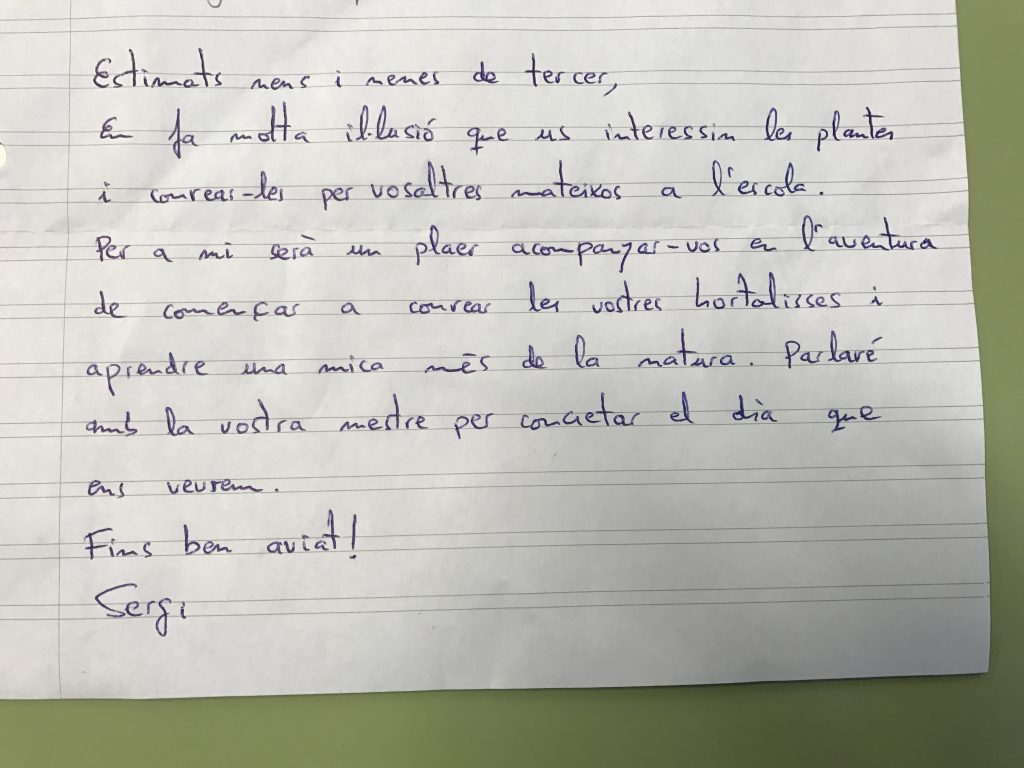 Estimats nens i nenes de tercer,
Em fa molta il·lusió que us interessin les plantes
i conrear-les per vosaltres mateixos a l'escola.
Per a mi serà un plaer acompanyar-vos en l'aventura
de començar a conrear les vostres hortalisses i
aprendre una mica més de la natura. Parlaré
amb la vostra mestre per concretar el dia que
ens veurem.
Fins ben aviat!
Sergi